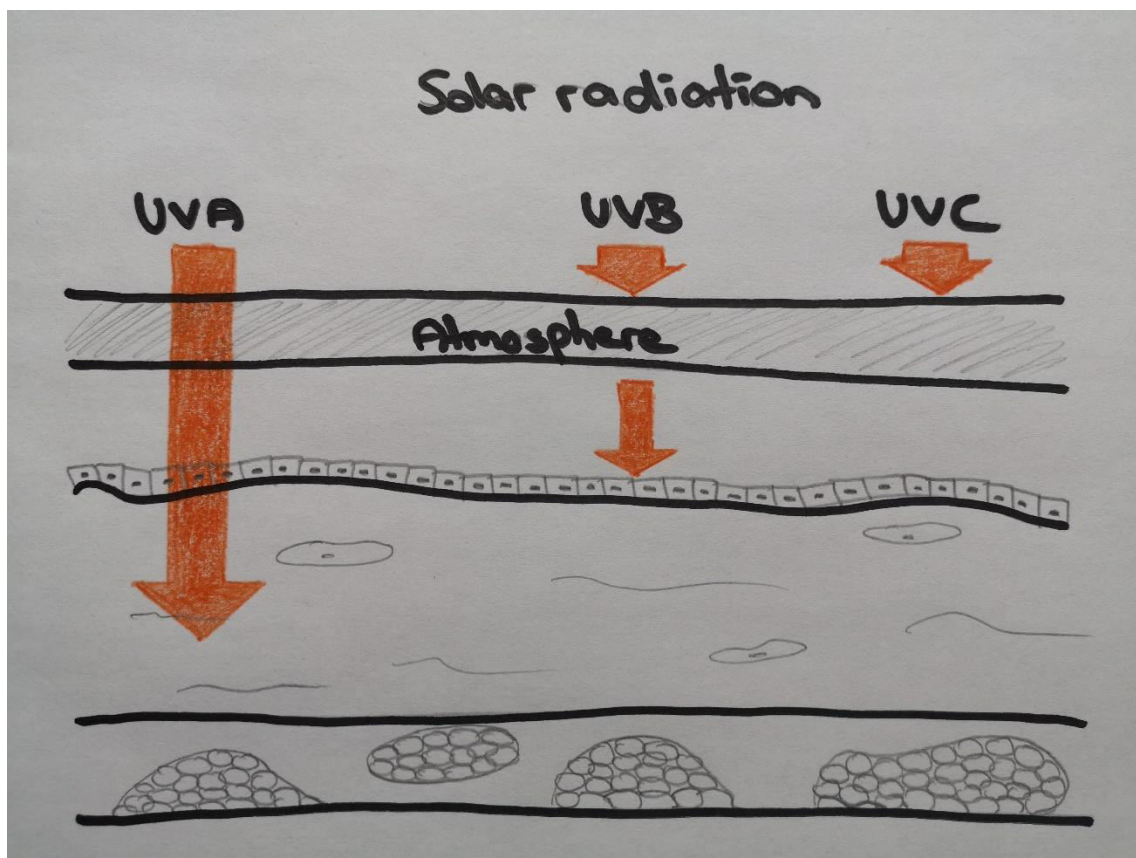 Solar radiation
UVA UVB UVC
Atmosphere